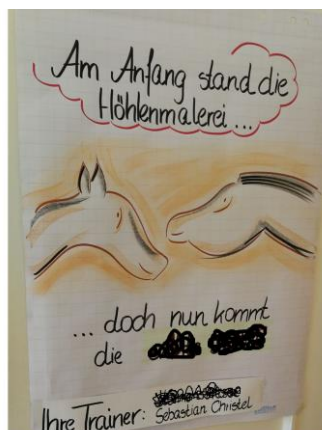 Am Anfang stand die
Höhlenmalerei...
... doch nun kommt
die
Ihre Trainer: Sebastian Christel